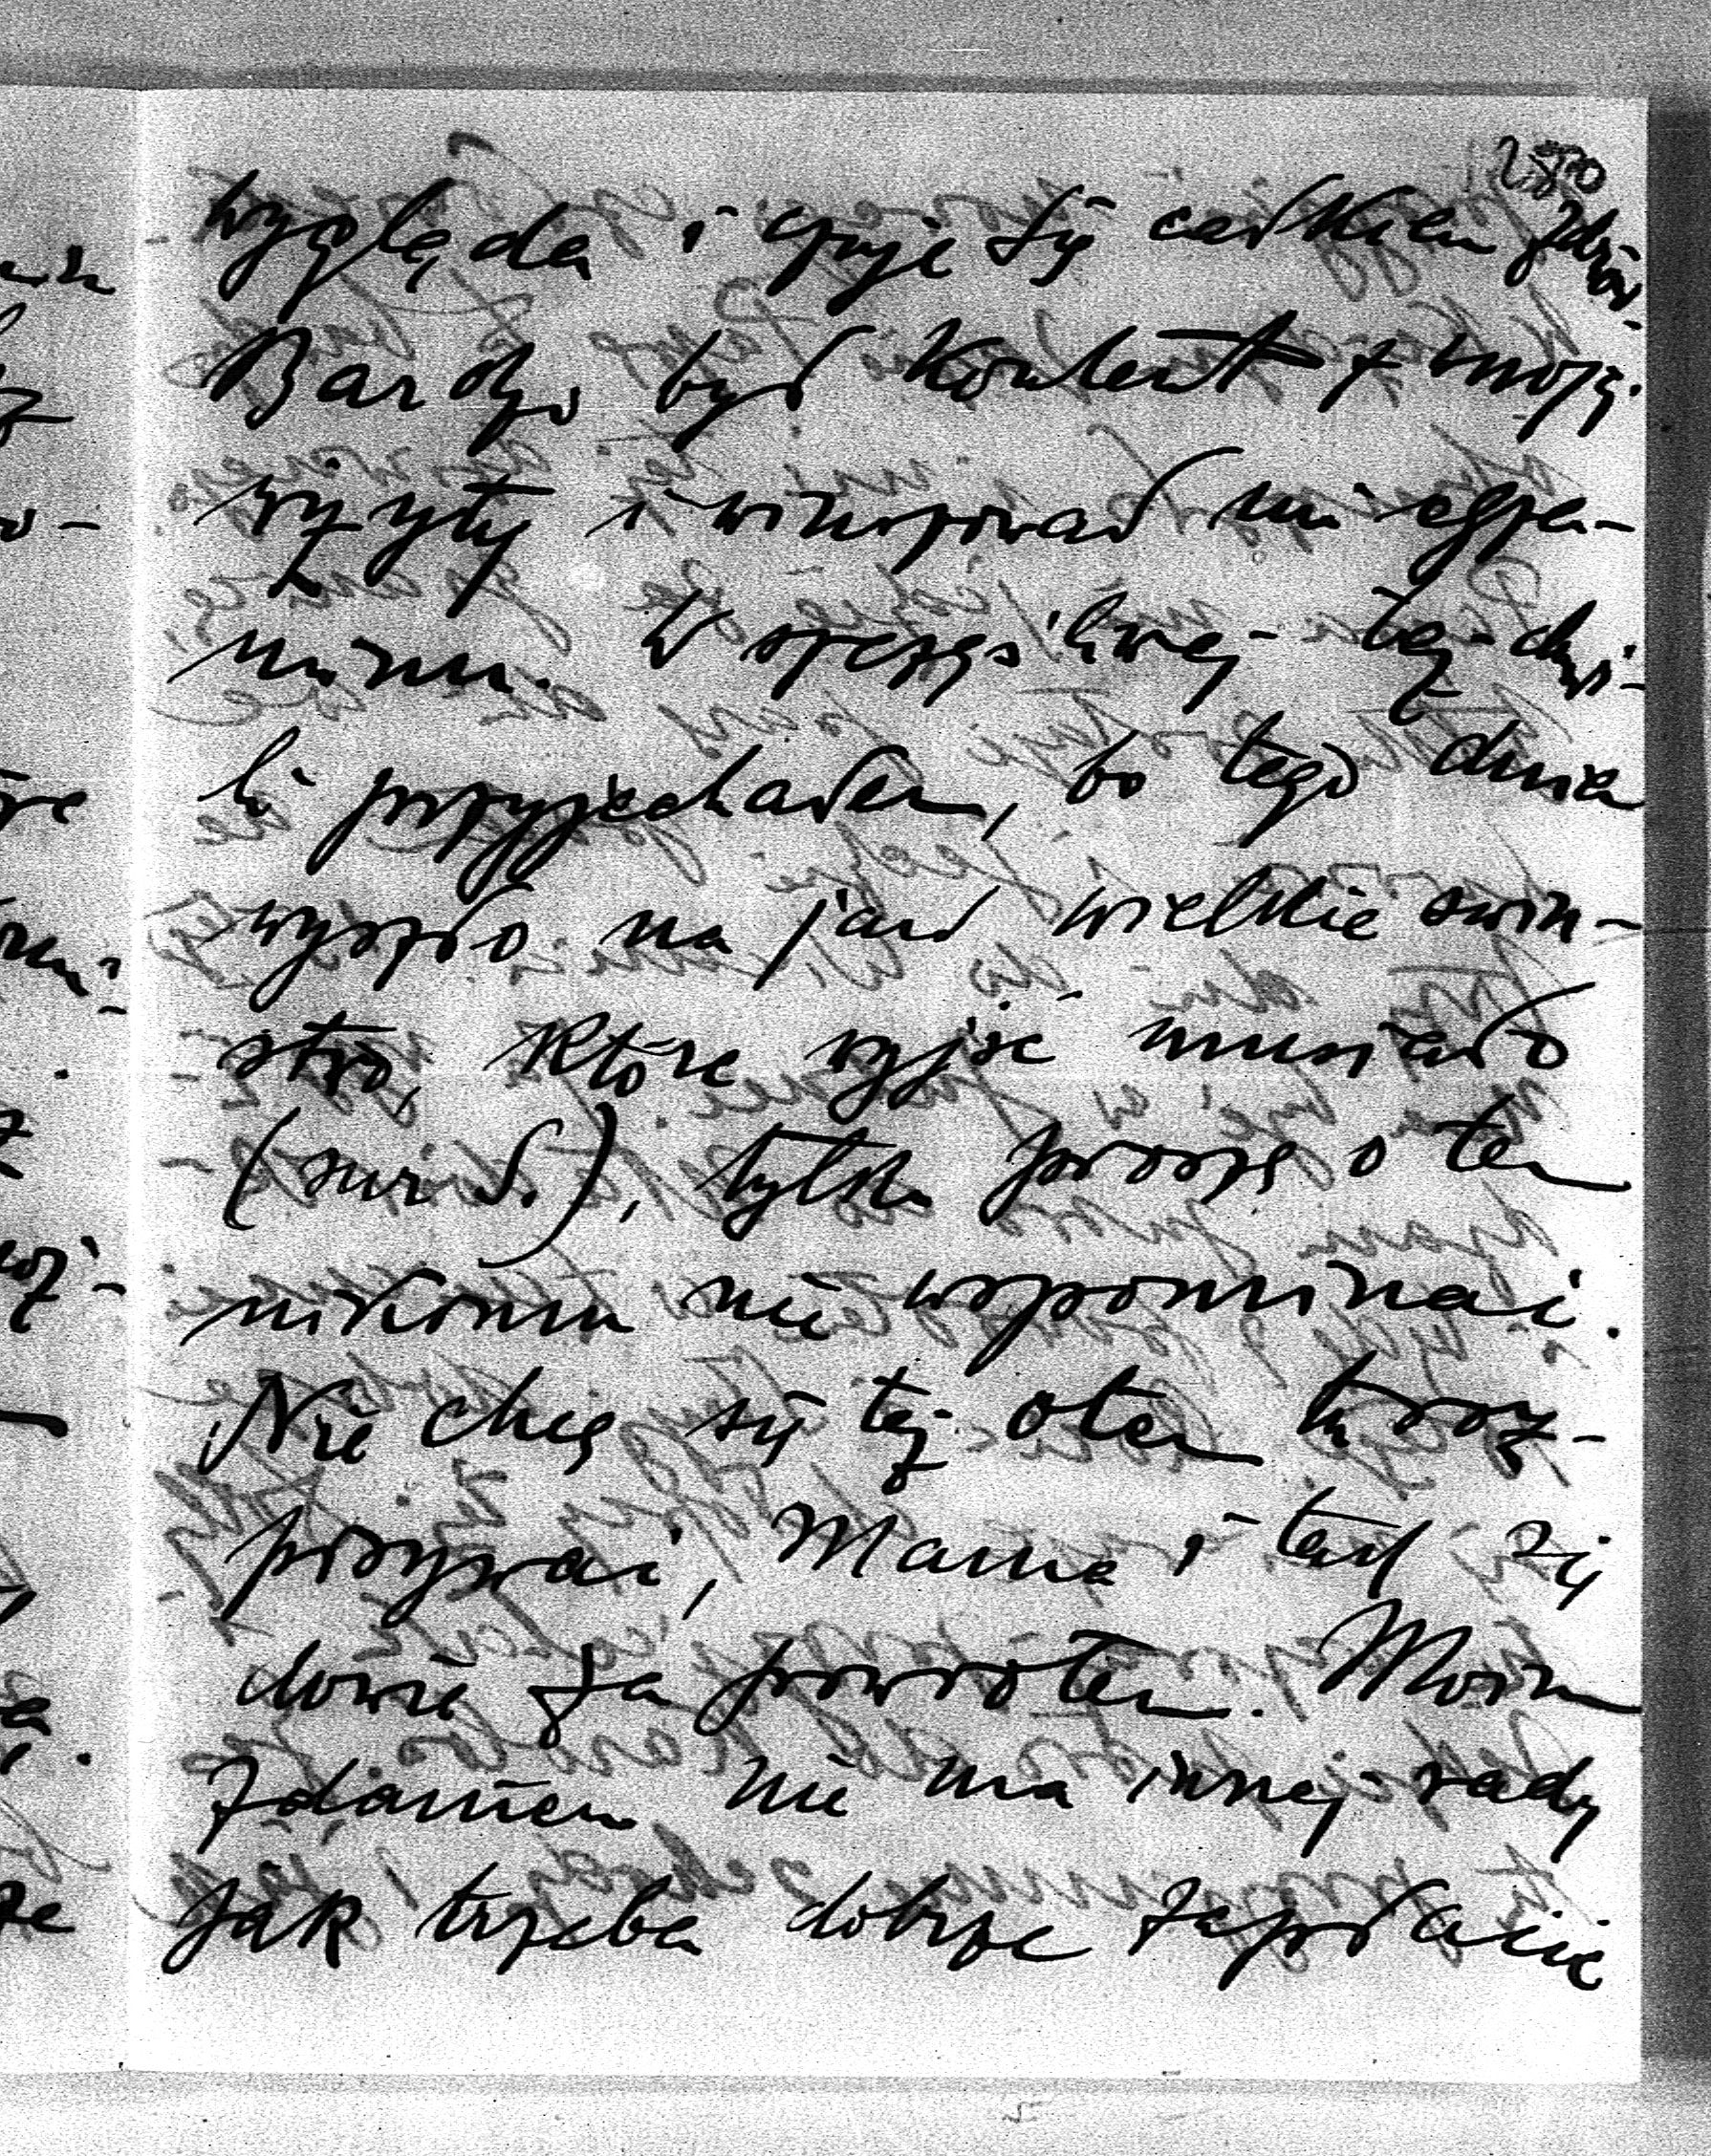 wygląda i czuje się całkiem zdrów.
Bardzo był kontent z mojej
wizyty i winszował mi egza-
minu. W szczęśliwej też chwi-
li przyjechałem, bo tego dnia
wyszło na jaw wielkie świń-
stwo, które wyjść musiało
( S.), tylko proszę o tem
nikomu nie wspominać.
Nie chcę się też o tem tu roz-
pisywać, Mama i tak się
dowie za powrotem. Moim
zdaniem nie ma innej rady
jak trzeba dobrze zapłacić